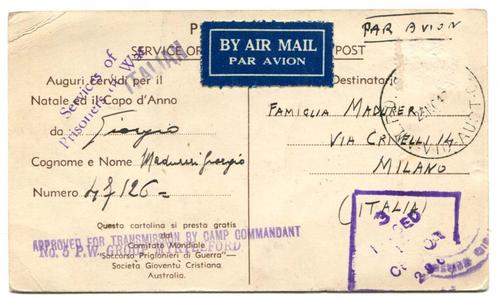 PAR AVION
SERVICE OF
POST
BY AIR MAIL
PAR AVION
Services of
Prisoners of War
ITALIAN
Auguri fervidi per il
Natale ed il Capo d'Anno
da Giorgio
Cognome e Nome Giorgio
Numero 47126
Destinatario
FAMIGLIA MADURERI
VIA CRIVELLI 14
MILANO
(ITALIA)
VIC. AUST
Questa cartolina si presta gratis
dal
APPROVED FOR TRANSMISSION BY CAMP COMMANDANT
Comitato Mondiale
No. 5 P.W. MYRTLEFORD
"Soccorso Prigionieri di Guerra"—
Società Gioventù Cristiana
Australia.
3